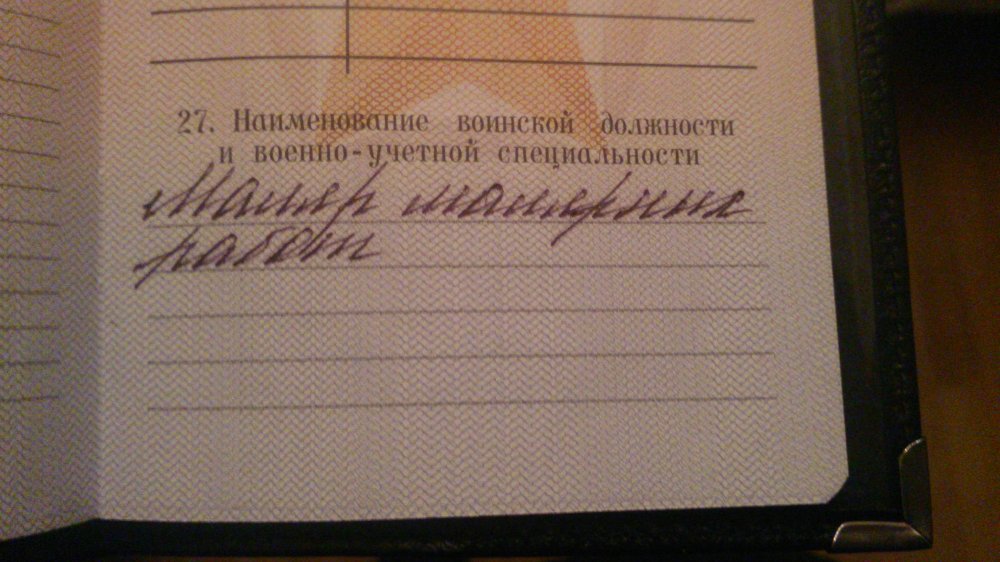 27. Наименование воинской должности
и военно-учетной специальности
Маляр малярных
работ